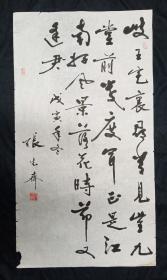 岐王宅裏尋常見崔九
堂前幾度聞正是江
南好風景落花時節又
逢君 戊寅年冬
張